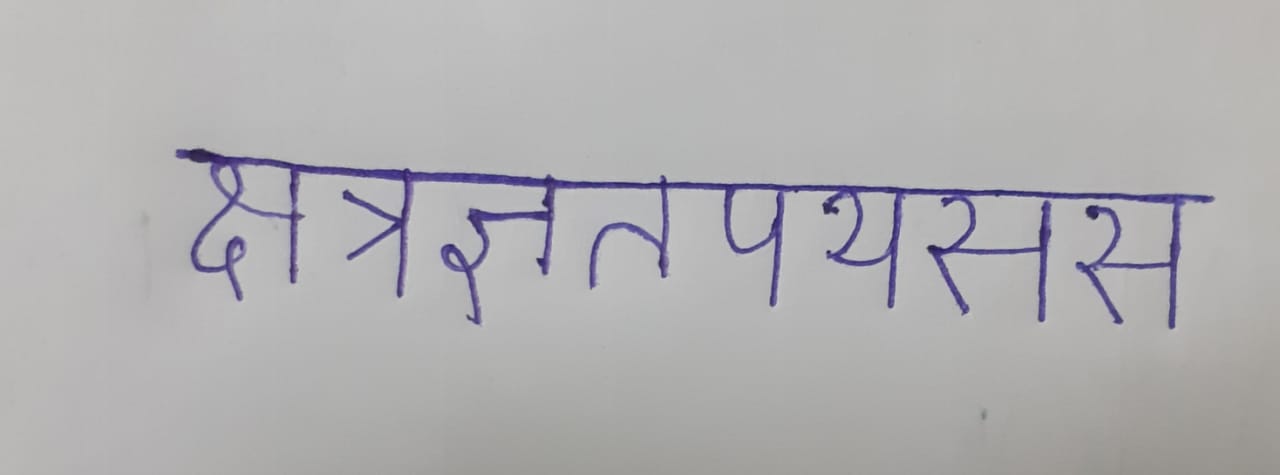 क्षत्रज्ञतपयसस